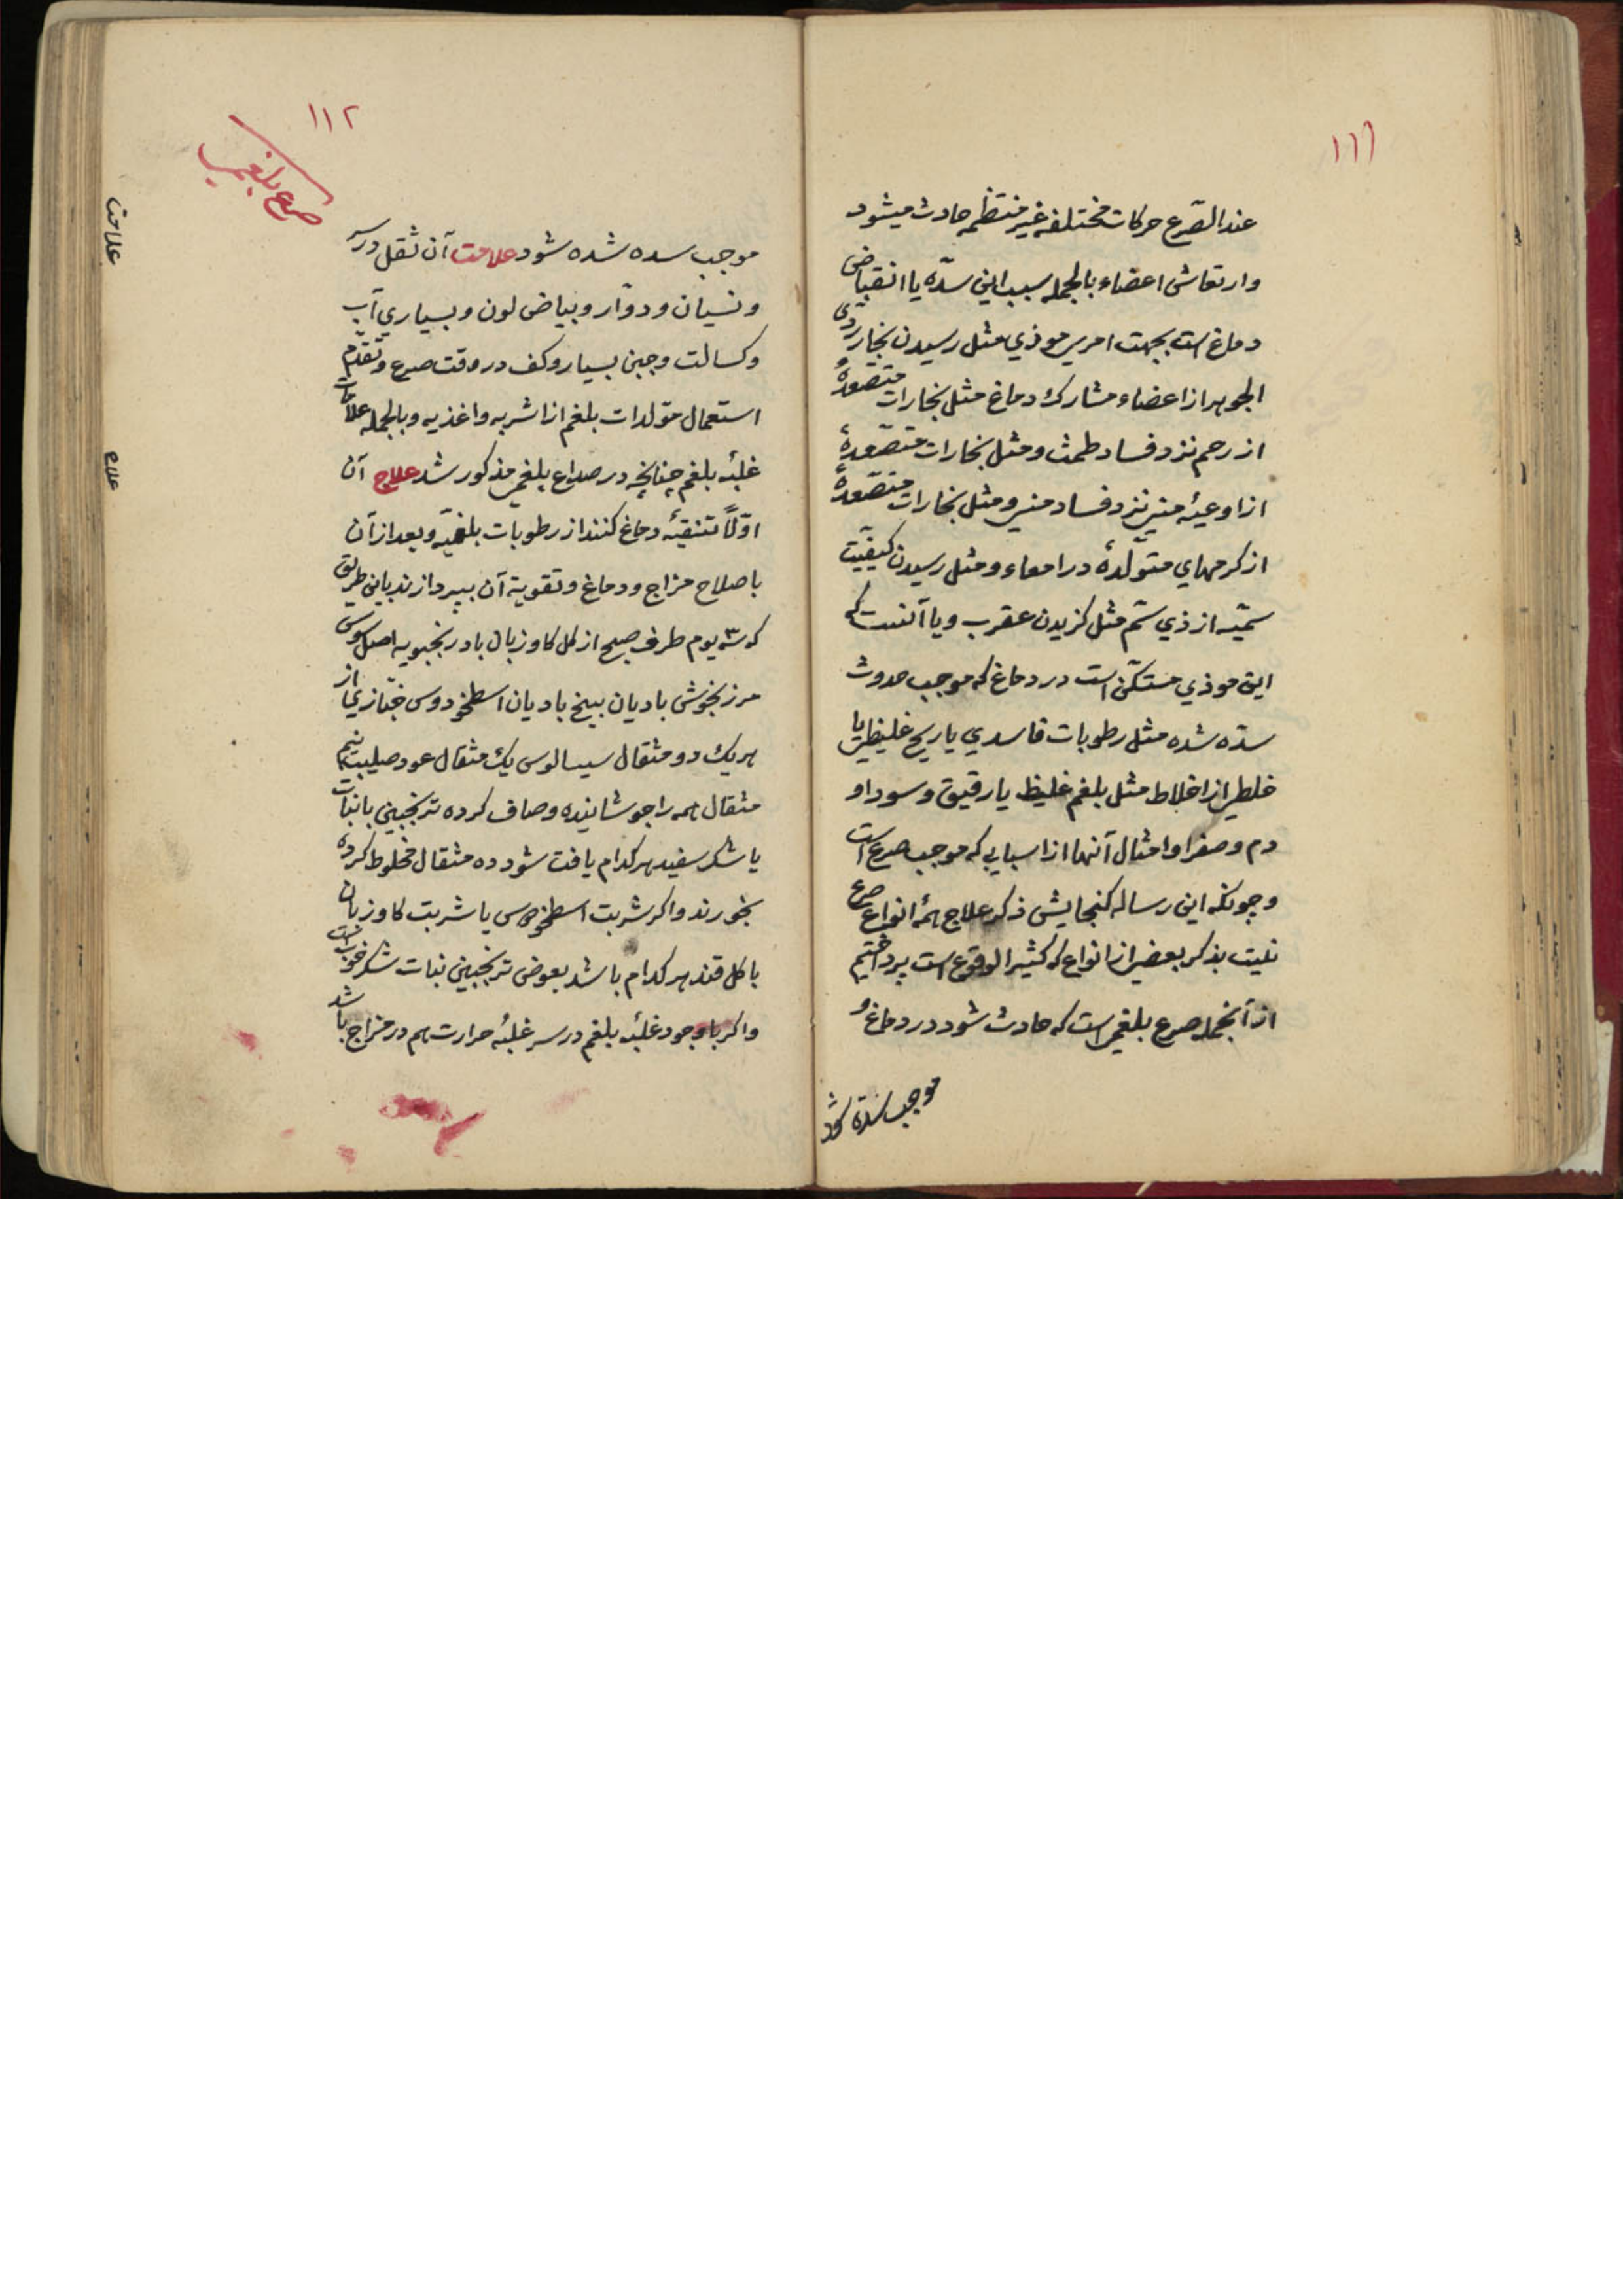 ١١١
عند الصّرع حرکات مختلفه غیر منتظمه حادث میشود
و ارتعاش اعضاء بالجمله سبب این سدّه یا انقباض
دماغ است بجهت امری موذي مثل رسیدن بخار ردی
الجوهر از اعضاء مشارك دماغ مثل بخارات متصّعدهٔ
از رحم نزد فساد طمث و مثل بخارات متصّعدهٔ
از اوعیهٔ منی نزد فساد منی و مثل بخارات متصّعدهٔ
از کرمهاي متوّلدهٔ در امعاء و مثل رسیدن کیفیّت
سمّیه از ذي سّم مثل کزیدن عقرب و یا آنست که
این موذي متسکّن است در دماغ که موجب حدوث
سدّه شده مثل رطوبات فاسدي یا ریح غلیظی یا
خلطی از اخلاط مثل بلغم غلیظ یا رقیق و سودا و
دم و صفرا و امثال آنها از اسبابی که موجب صرع است
و چونکه این رساله کنجایش ذکر علاج همهٔ انواع صرع
نیست بذکر بعضی از انواع که کثیر الوقوع است پرداختیم
از آنجمله صرع بلغمی است که حادث شود در دماغ و
موجب سدّه شود
١١٢
صرع بلغمی
موجب سده شده شود علامت آن ثقل در سر
و نسیان و دوّار و بیاض لون و بسیاري آب
و کسالت و جبن بسیار و کف در وقت صرع و تقدّم
استعمال مولدات بلغم از اشربه و اغذیه و بالجمله علامات
غلبهٔ بلغم چنانچه در صداع بلغمی مذکور شد علاج آن
اوّلاً تنقیهٔ دماغ کنند از رطوبات بلغمیّه و بعد از آن
باصلاح مزاج و دماغ و تقویة آن بپردازند باین طریق
که ٣ یوم طرف صبح از کل کاوزبان بادرنجبویه اصل سوس
مرزنجوش بادیان بیخ بادیان اسطخودوس خبّازي از
هریك دو مثقال سیسالوس یك مثقال عود صلیب نیم
مثقال همه را جوشانیده و صاف کرده ترنجبین یا نبات
یا شکر سفید هر کدام یافت شود ده مثقال مخلوط کرده
بخورند و اکر شربت اسطخودوس یا شربت کاوزبان
یا کل قند هر کدام باشد بعوض ترنجبین نبات شکر خوب است
و اکر با وجود غلبهٔ بلغم در سر غلبهٔ حرارت هم در مزاج باشد
علامت
علاج